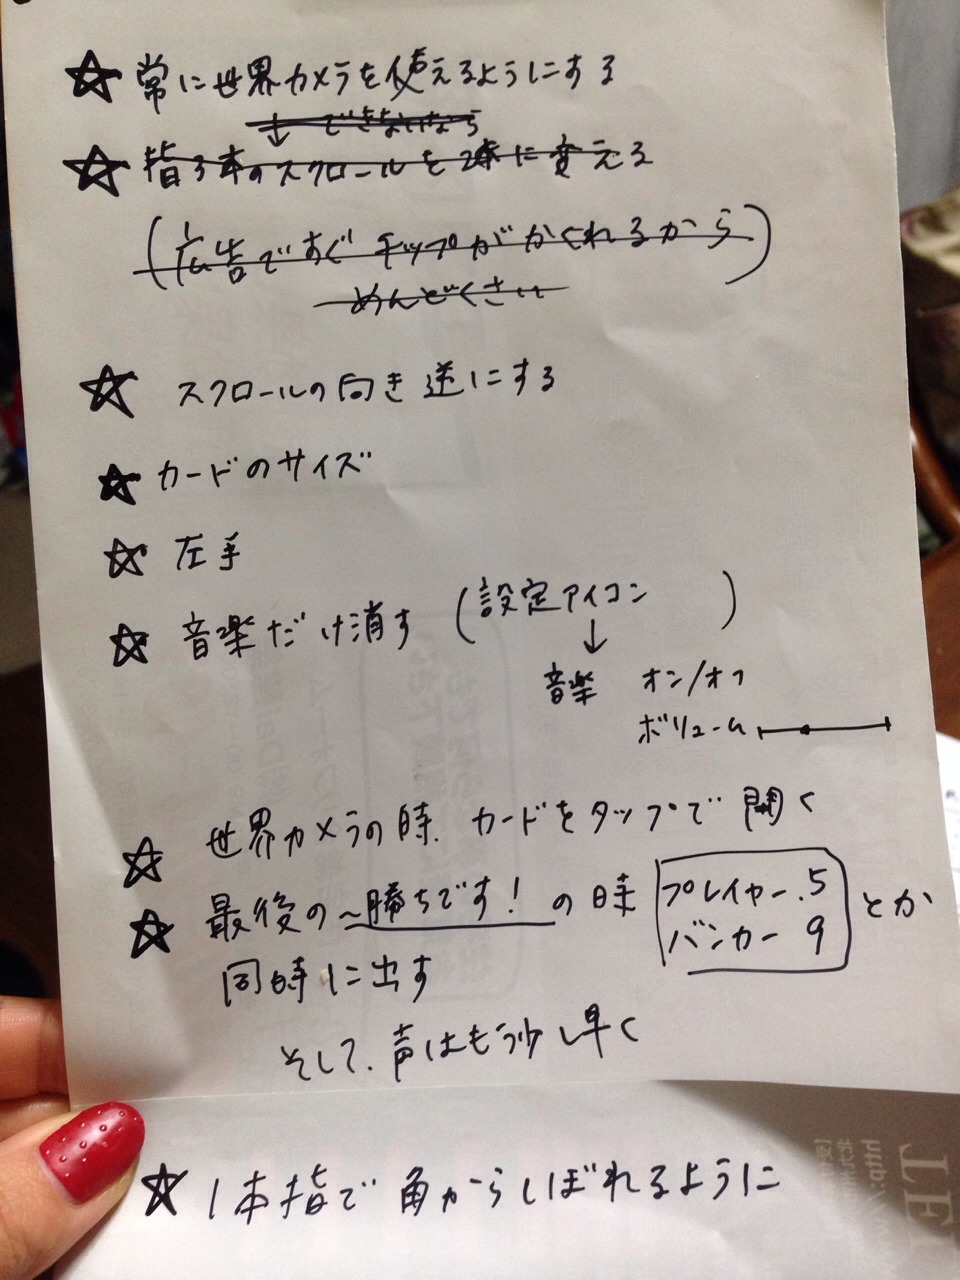 ☆ 常に世界カメラを使えるようにする
↓ できないなら
☆ 指3本のスクロールを2本に変える
(広告ですぐチップがかくれるから
めんどくさい)
☆ スクロールの向き逆にする
☆ カードのサイズ
☆ 左手
☆ 音楽だけ消す (設定アイコン)
↓
音楽 オン/オフ
ボリューム
☆ 世界カメラの時、カードをタップで開く
☆ 最後の〜勝ちです!の時 プレイヤー.5 とか
バンカー 9
同時に出す
そして、声はもう少し早く
☆ 1本指で角からしぼれるように